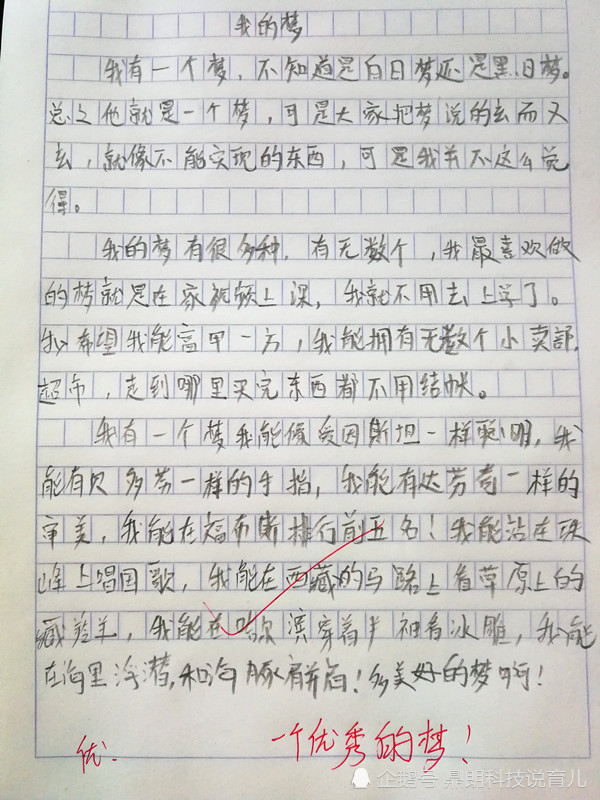 我的梦
我有一个梦，不知道是白日梦还是黑日梦。
总之他就是一个梦，可是大家把梦说的玄而又
玄，就像不能实现的东西，可是我并不这么觉
得。
我的梦有很多种，有无数个，我最喜欢做
的梦就是在家视频上课，我就不用去上学了。
我希望我能富甲一方，我能拥有无数个小卖部，
超市，走到哪里买完东西都不用结帐。
我有一个梦我能像爱因斯坦一样聪明，我
能有贝多芬一样的手指，我能有达芬奇一样的
审美，我能在福布斯排行前五名！我能站在珠
峰上唱国歌，我能在西藏的马路上看草原上的
藏羚羊，我能在哈尔滨穿着半袖看冰雕，我能
在海里浮潜，和海豚肩并肩！多美好的梦啊！
优.
一个优秀的梦！
企鹅号 鼎朗科技说育儿